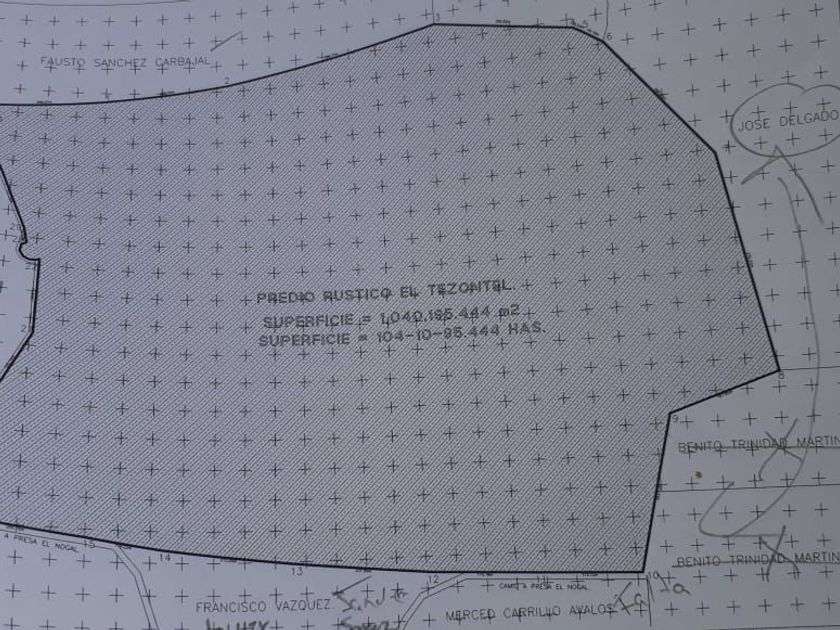 3
4
5
6
FAUSTO SANCHEZ CARBAJAL
2
JOSE DELGADO
PREDIO RUSTICO EL TEZONTEL.
SUPERFICIE = 1,040,195.444 m2.
SUPERFICIE = 104-10-95.444 HAS.
2
8
9
BENITO TRINIDAD MARTIN
BENITO TRINIDAD MARTIN
A PRESA EL NOGAL
15
14
13
12
CAMINO A PRESA EL NOGAL
10
FRANCISCO VAZQUEZ.
MERCED CARRILLO AVALOS